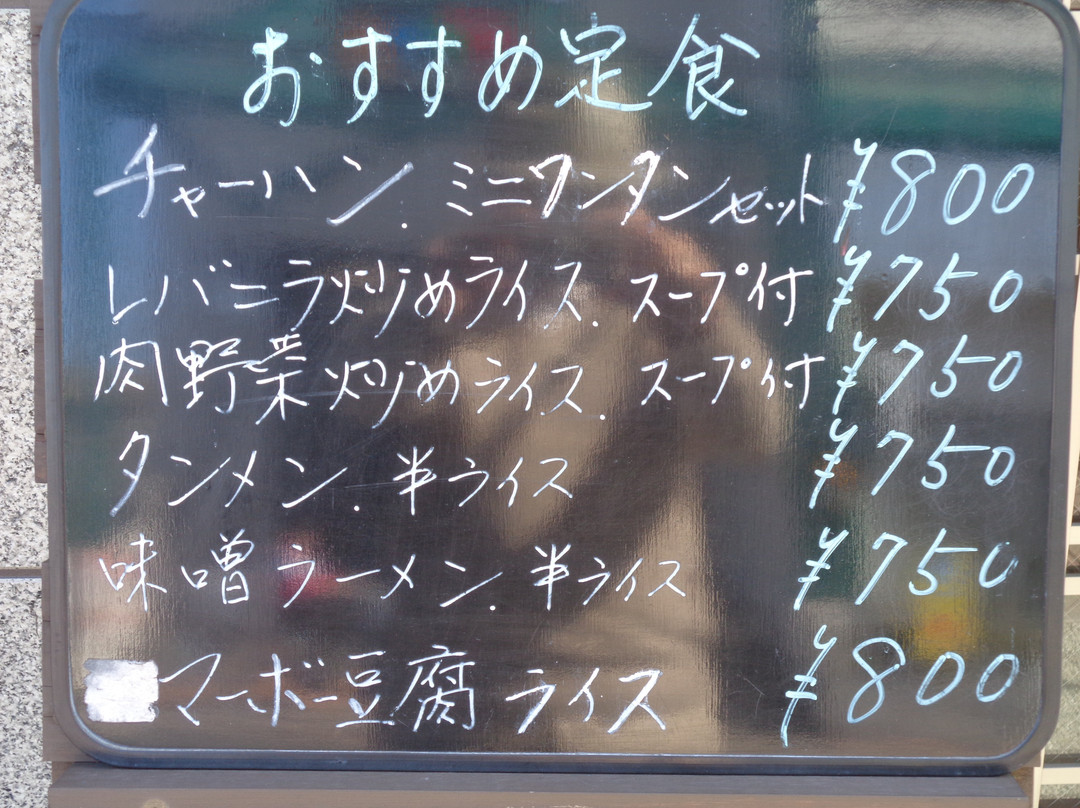 おすすめ定食
チャーハン.ミニワンタンセット ¥800
レバニラ炒めライス.スープ付 ¥750
肉野菜炒めライス.スープ付 ¥750
タンメン.半ライス ¥750
味噌ラーメン.半ライス ¥750
マーボー豆腐 ライス ¥800